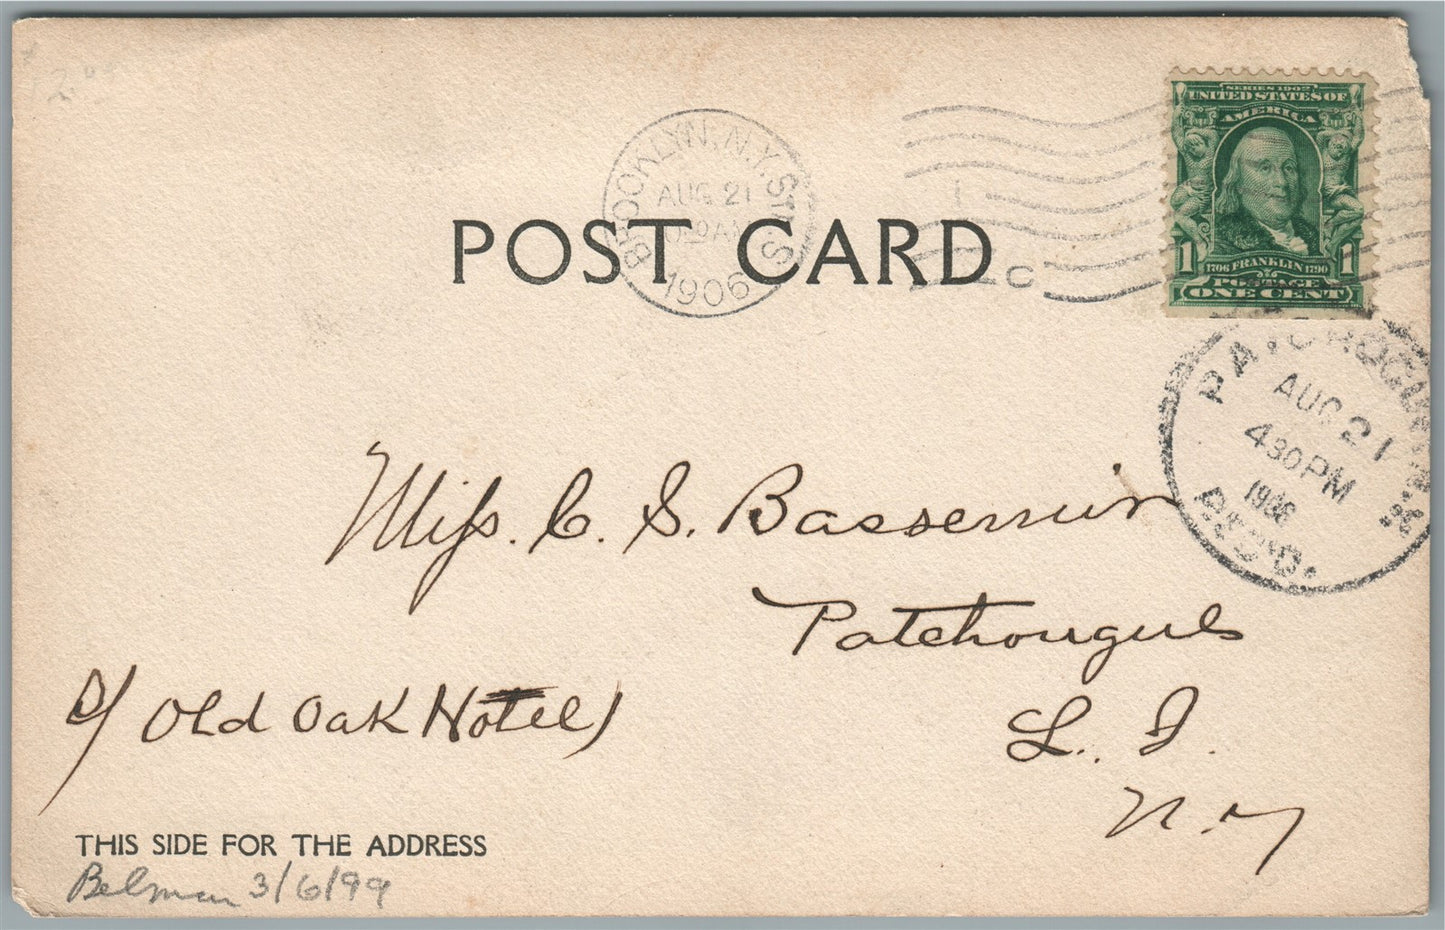 SERIES 1902
UNITED STATES OF
AMERICA
1 1
1706 FRANKLIN 1790
POSTAGE
ONE CENT
BROOKLYN, N.Y. STA. S
AUG 21
1906
POST CARD
AUG 21
430 PM
1906
REC'D.
Miss. C. S.
Patchougue
L. I.
N. Y
c/ Old Oak Hotel
THIS SIDE FOR THE ADDRESS
3/6/99